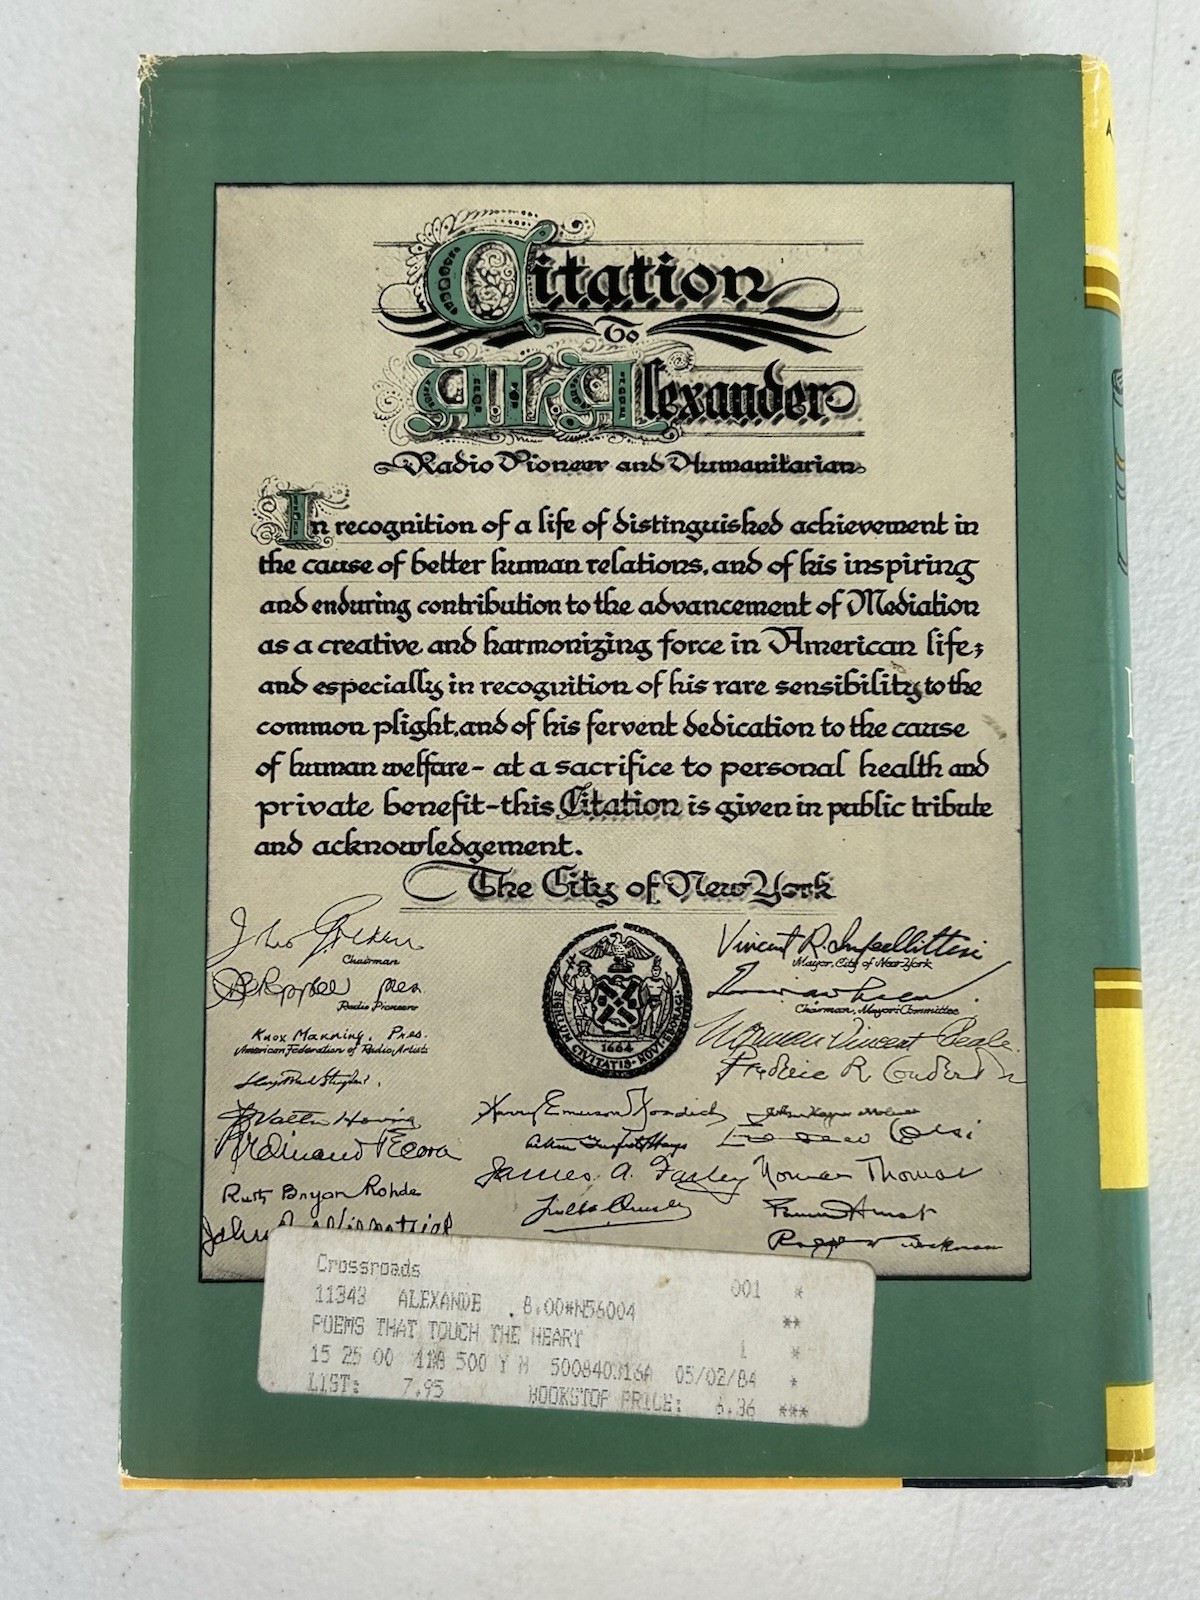 Citation
To
A.L. Alexander
Radio Pioneer and Humanitarian
In recognition of a life of distinguished achievement in
the cause of better human relations, and of his inspiring
and enduring contribution to the advancement of Mediation
as a creative and harmonizing force in American life;
and especially in recognition of his rare sensibility to the
common plight, and of his fervent dedication to the cause
of human welfare - at a sacrifice to personal health and
private benefit - this Citation is given in public tribute
and acknowledgement.
The City of New York
Chairman
Radio Pioneers
Knox Manning, Pres.
American Federation of Radio Artists
Walter Hoving
Ferdinand Pecora
Ruth Bryan Rohde
SIGILLUM CIVITATIS NOVI EBORACI
1664
Harry Emerson Fosdick
James A. Farley
Vincent R. Impellitteri
Mayor, City of New York
Chairman, Mayor's Committee
Norman Vincent Peale
Norman Thomas
Crossroads 001 *
11343 ALEXANDE 8.00*N56004 **
POEMS THAT TOUCH THE HEART 1 *
15 25 00 118 500 Y M 05/02/84 *
LIST: 7.95 BOOKSTOP PRICE: 6.36 ***